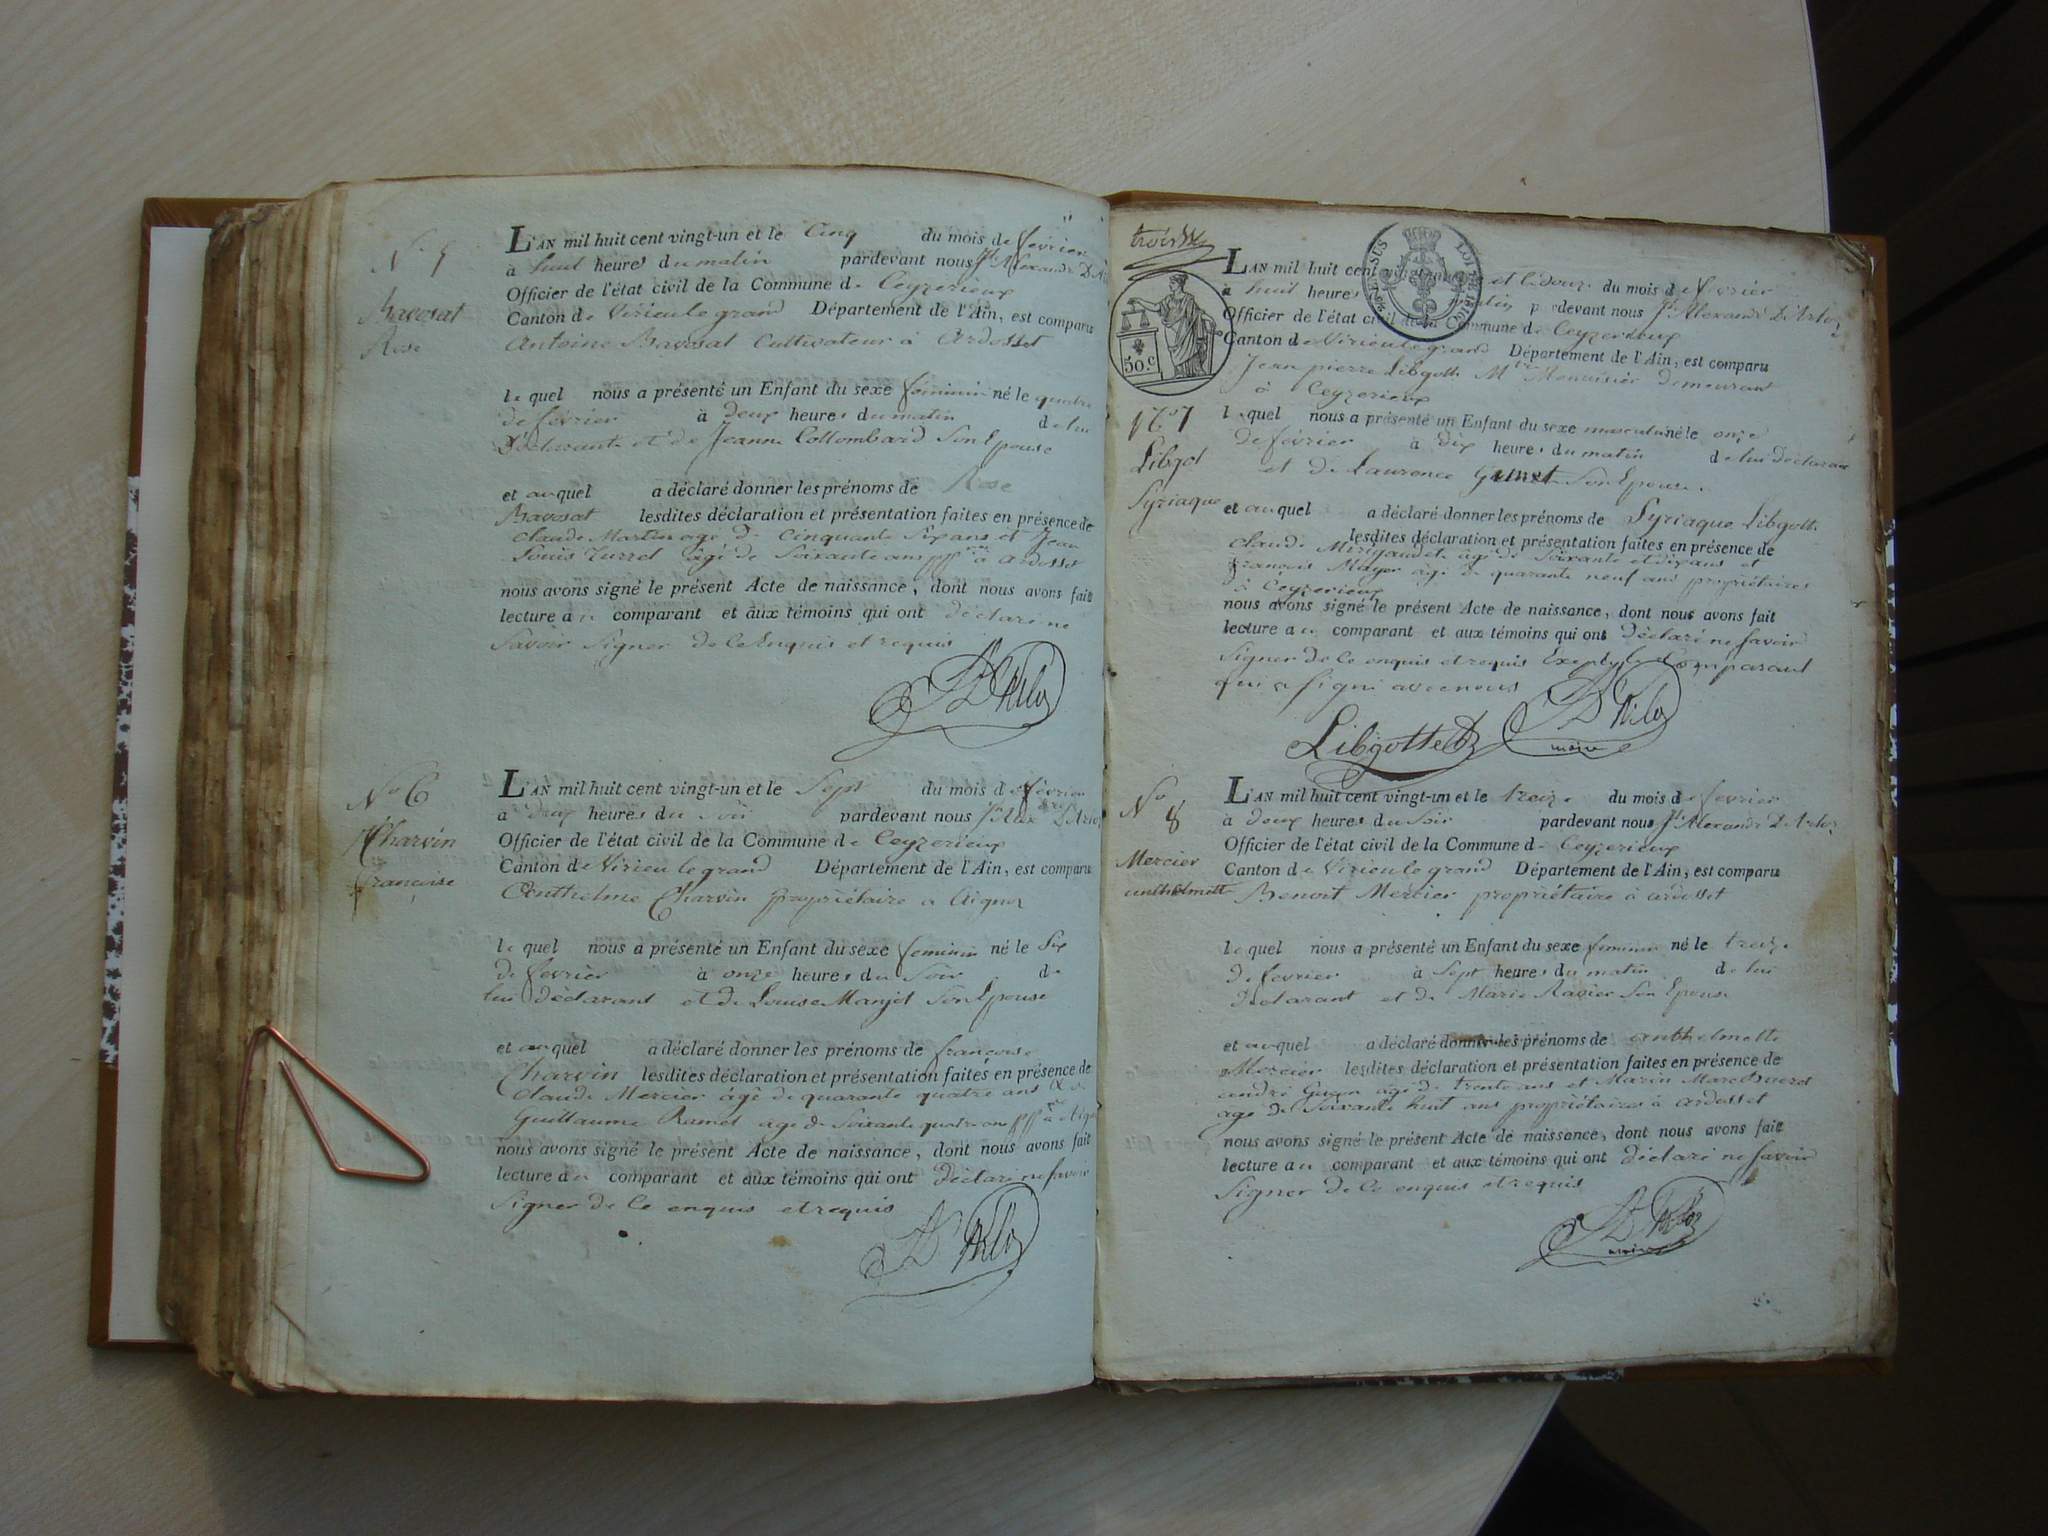 N° 5
Bavosat
Rose
L'AN mil huit cent vingt-un et le Cinq du mois de février
à huit heures du matin pardevant nous Jh Alexandre D'Ar
Officier de l'état civil de la Commune de Ceyzerieux
Canton de Virieu le grand Département de l'Ain, est comparu
Antoine Bavosat Cultivateur à Ardosset
lequel nous a présenté un Enfant du sexe féminin né le quatre
de février à deux heures du matin de lui
Déclarant et de Jeanne Collombard Son Epouse
et auquel a déclaré donner les prénoms de Rose
Bavosat lesdites déclaration et présentation faites en présence de
Claude Martin agé de Cinquante Six ans et Jean
Louis Turrel âgé de Soixante ans à Ardosset
nous avons signé le présent Acte de naissance, dont nous avons fait
lecture au comparant et aux témoins qui ont déclaré ne
Savoir Signer de Ce Enquis et requis
D'Arloz
N° 6
Charvin
françoise
L'AN mil huit cent vingt-un et le Sept du mois de février
à deux heures du soir pardevant nous Jh Alex D'Arloz
Officier de l'état civil de la Commune de Ceyzerieux
Canton de Virieu le grand Département de l'Ain, est comparu
Anthelme Charvin propriétaire a Aignoz
lequel nous a présenté un Enfant du sexe feminin né le Six
de fevrier à onze heures du Soir de
lui déclarant et de Louise Manjot Son Epouse
et auquel a déclaré donner les prénoms de françoise
Charvin lesdites déclaration et présentation faites en présence de
Claude Mercier âgé de quarante quatre ans &
Guillaume Ramel agé de Soixante quatre ans à
nous avons signé le présent Acte de naissance, dont nous avons fait
lecture au comparant et aux témoins qui ont déclaré ne savoir
Signer de Ce enquis et requis
D'Arloz
trois
TIMBRE EN SUS
LOI DE 1816
50.c
N° 7
Libgot
Syriaque
L'AN mil huit cent vingt-un et le douze du mois de fevrier
à huit heures du matin pardevant nous Jh Alexandre D'Arloz
Officier de l'état civil de la Commune de Ceyzerieux
Canton de Virieu le grand Département de l'Ain, est comparu
Jean pierre Libgott Mtre Menuisier demeurant
à Ceyzerieux
lequel nous a présenté un Enfant du sexe masculin né le onze
de février à dix heures du matin de lui Déclarant
et de Laurence Son Epouse.
et auquel a déclaré donner les prénoms de Syriaque Libgott
lesdites déclaration et présentation faites en présence de
Claude âgé de Soixante et dix ans et
françois Mayer âgé de quarante neuf ans propriétaires
à Ceyzerieux
nous avons signé le présent Acte de naissance, dont nous avons fait
lecture au comparant et aux témoins qui ont déclaré ne savoir
Signer de Ce enquis et requis Excepté le Comparant
qui a signé avec nous
Libgotte
D'Arloz
maire
N° 8
Mercier
anthelmette
L'AN mil huit cent vingt-un et le treize du mois de fevrier
à deux heures du Soir pardevant nous Jh Alexandre D'Arloz
Officier de l'état civil de la Commune de Ceyzerieux
Canton de Virieu le grand Département de l'Ain, est comparu
Benoit Mercier propriétaire à ardosset
lequel nous a présenté un Enfant du sexe feminin né le treize
de fevrier à Sept heures du matin de lui
declarant et de Marie Ravier Son Epouse
et auquel a déclaré donner les prénoms de anthelmette
Mercier lesdites déclaration et présentation faites en présence de
andré âgé de trente ans et Marin
agé de Soixante huit ans propriétaires à Ardosset
nous avons signé le présent Acte de naissance, dont nous avons fait
lecture au comparant et aux témoins qui ont déclaré ne savoir
Signer de Ce enquis et requis
D'Arloz
maire